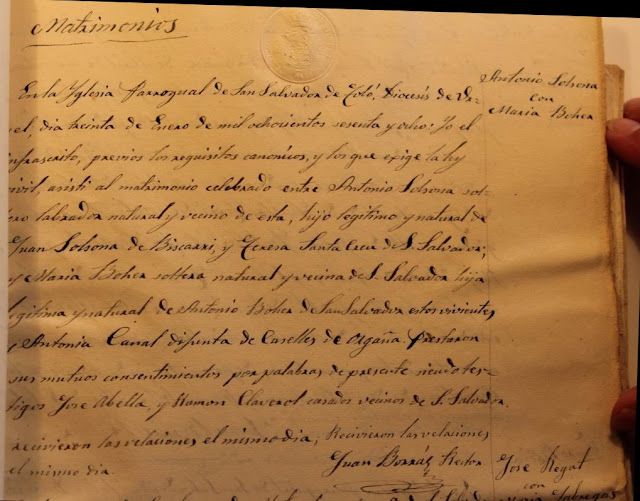 Matrimonios
En la Yglesia Parroquial de San Salvador de Toló, Diocesis de Ur-
el, dia treinta de Enero de mil ochocientos sesenta y ocho: Yo el
infrascrito, previos los requisitos canonicos, y los que exige la ley
civil, asisti al matrimonio celebrado entre Antonio Solsona sol-
tero labrador natural y vecino de esta, hijo legitimo y natural de
Juan Solsona de Biscarri, y Teresa Santa Creu de S. Salvador;
y Maria Boher soltera natural y vecina de S. Salvador hija
legitima y natural de Antonio Boher de San Salvador estos vivientes
y Antonia Canal difunta de Caselles de Orgaña. Prestaron
sus mutuos consentimientos por palabras de presente siendo tes-
tigos Jose Abella, y Ramon Claverol casados vecinos de S. Salvador.
recivieron las velaciones el mismo dia, Recivieron las velaciones
el mismo dia.
Juan Borrás Rector
Antonio Solsona
con
Maria Boher
Jose Regat
con